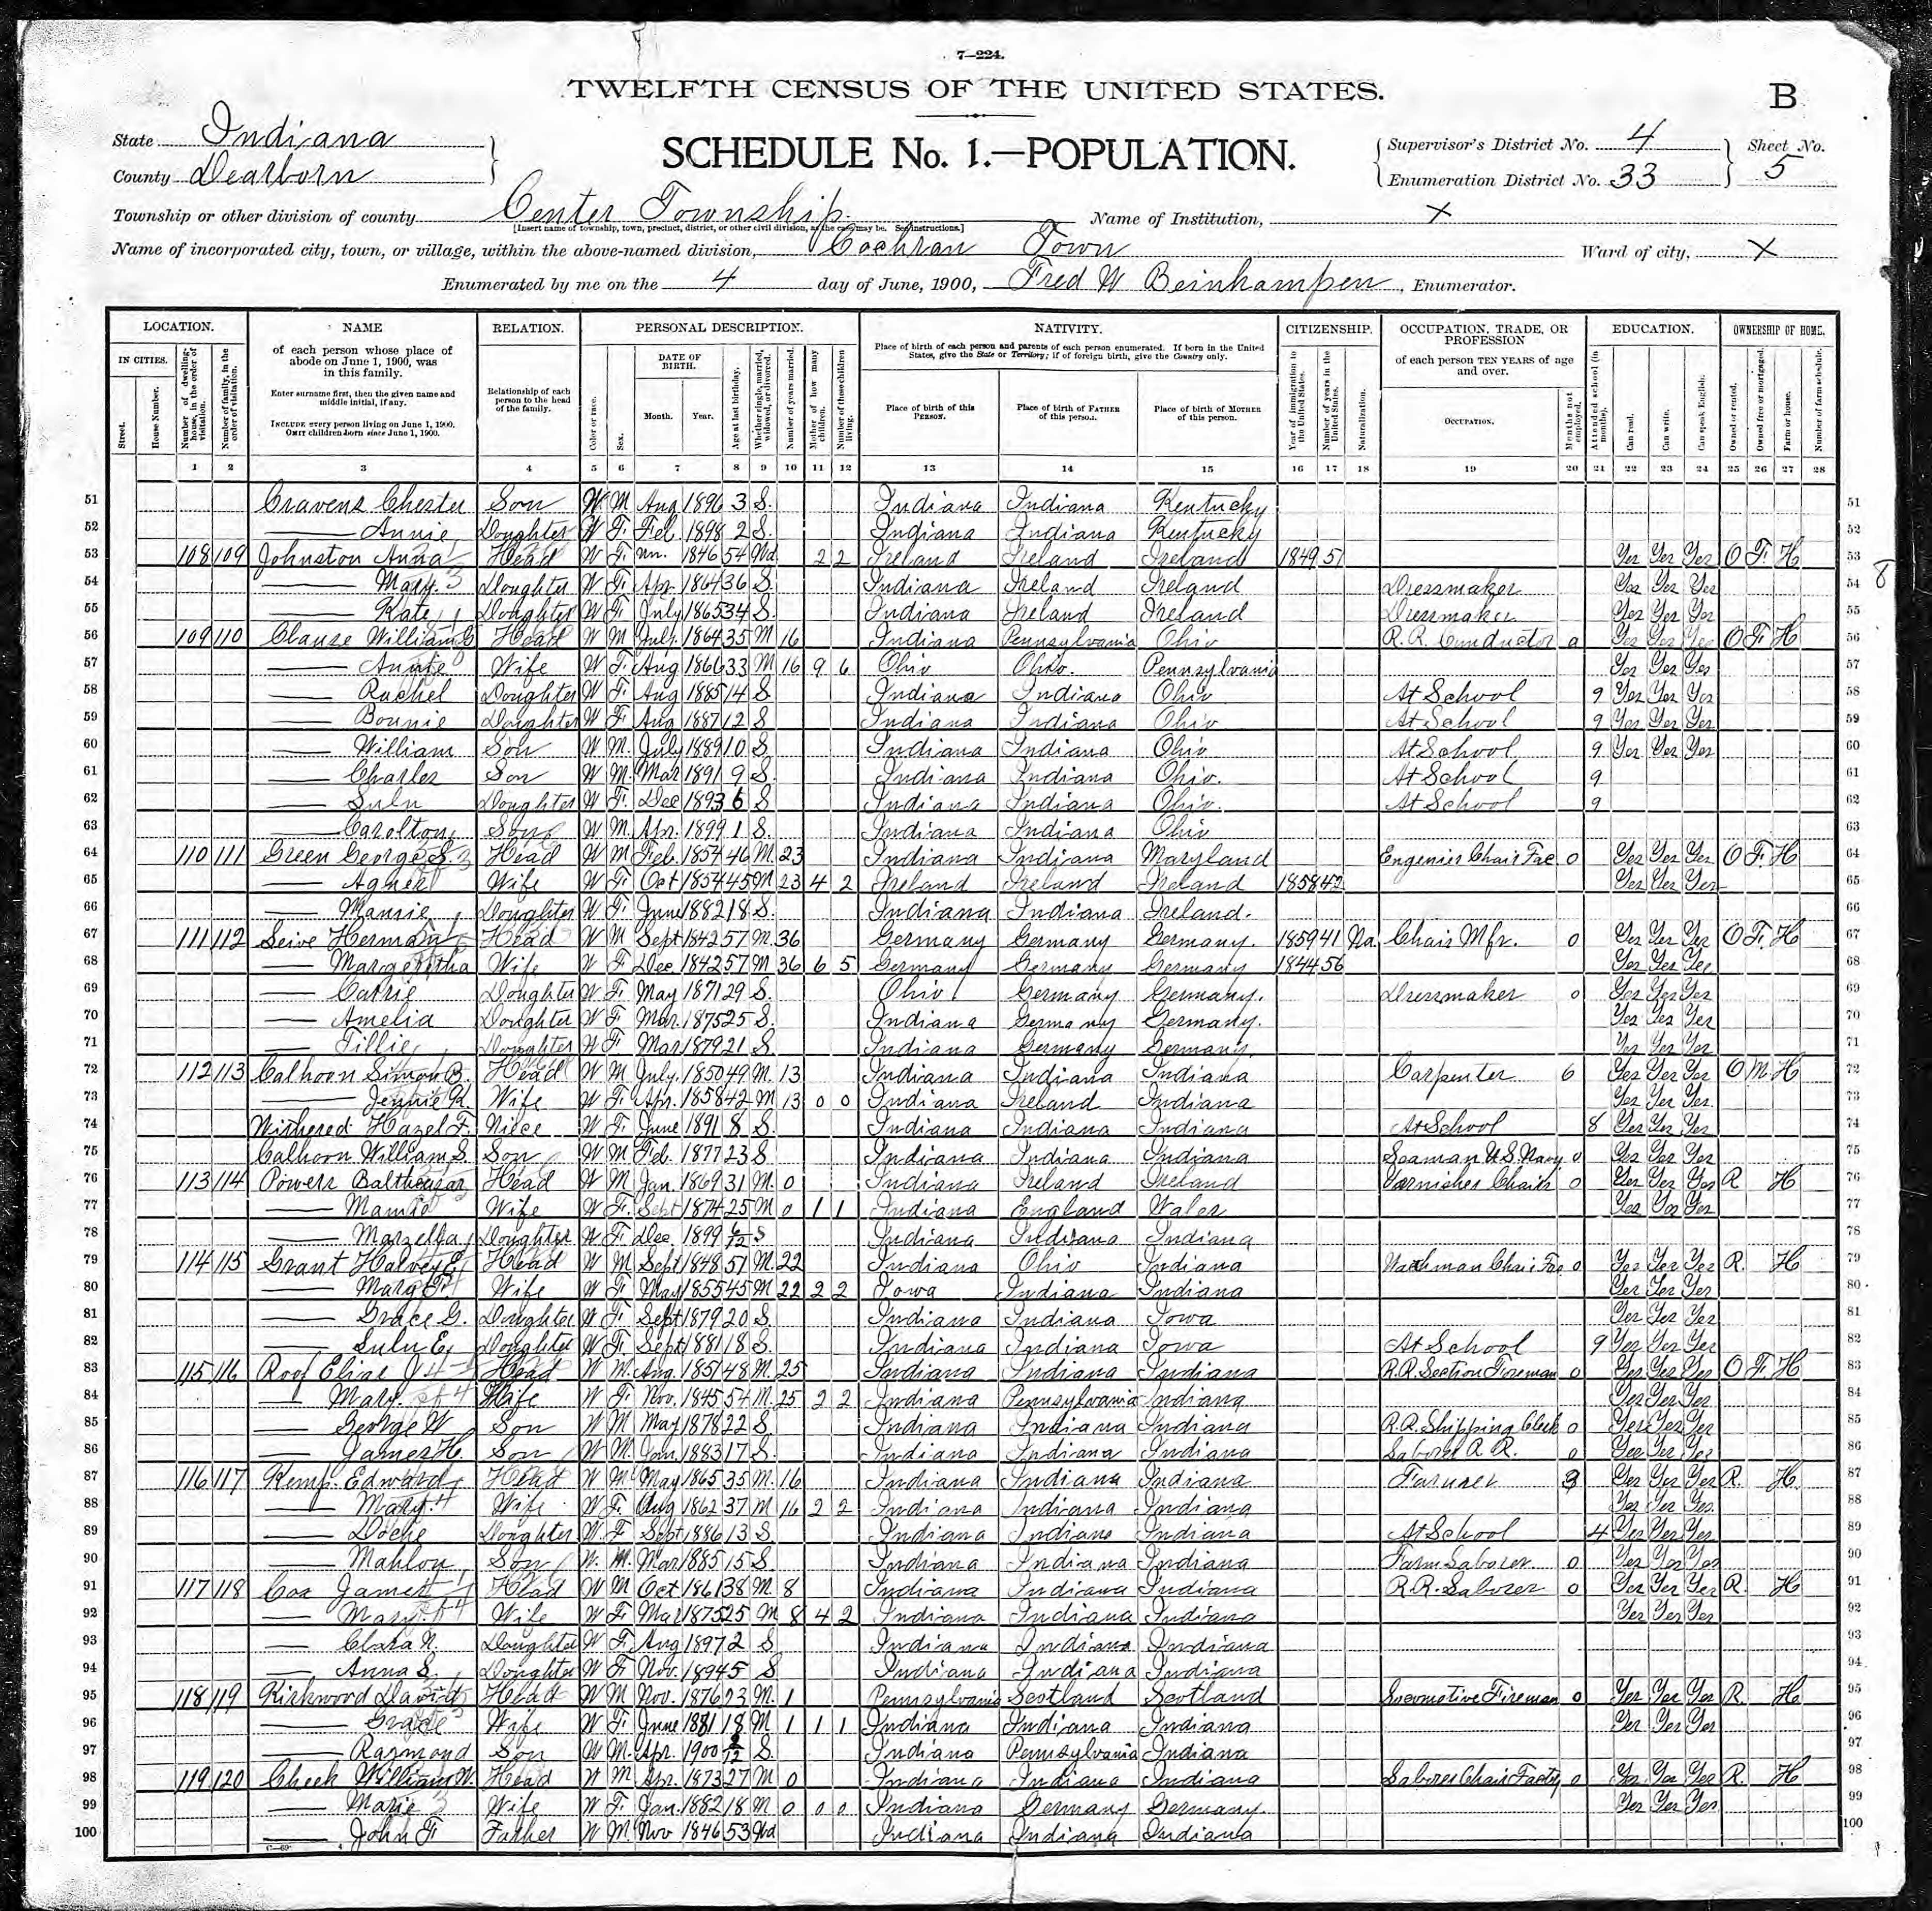 7—224.
TWELFTH CENSUS OF THE UNITED STATES.
B
State Indiana
County Dearborn
SCHEDULE No. 1.—POPULATION.
Supervisor's District No. 4
Enumeration District No. 33
Sheet No.
5
Township or other division of county Center Township.
[Insert name of township, town, precinct, district, or other civil division, as the case may be. See instructions.]
Name of Institution, X
Name of incorporated city, town, or village, within the above-named division, Cochran Town
Ward of city, X
Enumerated by me on the 4 day of June, 1900, Fred W Beinkampen, Enumerator.
LOCATION. NAME RELATION. PERSONAL DESCRIPTION. NATIVITY. CITIZENSHIP. OCCUPATION, TRADE, OR PROFESSION EDUCATION. OWNERSHIP OF HOME.
IN CITIES.
Street.
House Number.
Number of dwelling-house, in the order of visitation.
Number of family, in the order of visitation.
of each person whose place of abode on June 1, 1900, was in this family.
Enter surname first, then the given name and middle initial, if any.
INCLUDE every person living on June 1, 1900.
OMIT children born since June 1, 1900.
Relationship of each person to the head of the family.
Color or race.
Sex.
DATE OF BIRTH.
Month. Year.
Age at last birthday.
Whether single, married, widowed, or divorced.
Number of years married.
Mother of how many children.
Number of these children living.
Place of birth of each person and parents of each person enumerated. If born in the United States, give the State or Territory; if of foreign birth, give the Country only.
Place of birth of this PERSON.
Place of birth of FATHER of this person.
Place of birth of MOTHER of this person.
Year of immigration to the United States.
Number of years in the United States.
Naturalization.
of each person TEN YEARS of age and over.
OCCUPATION.
Months not employed.
Attended school (in months).
Can read.
Can write.
Can speak English.
Owned or rented.
Owned free or mortgaged.
Farm or house.
Number of farm schedule.
1 2 3 4 5 6 7 8 9 10 11 12 13 14 15 16 17 18 19 20 21 22 23 24 25 26 27 28
51 Cravens Chester Son W M Aug 1896 3 S. Indiana Indiana Kentucky 51
52 —— Annie Doughter W F. Feb. 1898 2 S. Indiana Indiana Kentucky 52
53 108 109 Johnston Anna Head W F. un. 1846 54 Wd 2 2 Ireland Ireland Ireland 1849 51 Yes Yes Yes O F. H 53
54 —— Mary. Doughter W F. Apr. 1864 36 S. Indiana Ireland Ireland Dressmaker Yes Yes Yes 54
55 —— Kate Doughter W F. July 1865 34 S. Indiana Ireland Ireland Dressmaker Yes Yes Yes 55
56 109 110 Clause William G Head W M July. 1864 35 M 16 Indiana Pennsylvania Ohio R. R. Conductor 0 Yes Yes Yes O F H 56
57 —— Annie Wife W F. Aug 1866 33 M 16 9 6 Ohio Ohio. Pennsylvania Yes Yes Yes 57
58 —— Rachel Doughter W F. Aug 1885 14 S Indiana Indiana Ohio At School 9 Yes Yes Yes 58
59 —— Bonnie Doughter W F. Aug 1887 12 S Indiana Indiana Ohio At School 9 Yes Yes Yes 59
60 —— William Son W M. July 1889 10 S Indiana Indiana Ohio At School 9 Yes Yes Yes 60
61 —— Charles Son W M. Mar 1891 9 S. Indiana Indiana Ohio. At School 9 61
62 —— Lulu Doughter W F. Dec 1893 6 S Indiana Indiana Ohio. At School 9 62
63 —— Carolton Son W M. Apr. 1899 1 S. Indiana Indiana Ohio 63
64 110 111 Green George S. Head W M Feb. 1854 46 M. 23 Indiana Indiana Maryland Engenier Chair Fac 0 Yes Yes Yes O F. H 64
65 —— Agnes Wife W F. Oct 1854 45 M 23 4 2 Ireland Ireland Ireland 1858 42 Yes Yes Yes 65
66 —— Mansie Doughter W F. June 1882 18 S. Indiana Indiana Ireland. 66
67 111 112 Seive Herman Head W M Sept 1842 57 M. 36 Germany Germany Germany. 1859 41 Na. Chair Mfr. 0 Yes Yes Yes O F. H 67
68 —— Margeretha Wife W F Dec 1842 57 M 36 6 5 Germany Germany Germany 1844 56 Yes Yes Yes 68
69 —— Carrie Doughter W F. May 1871 29 S. Ohio Germany Germany. Dressmaker 0 Yes Yes Yes 69
70 —— Amelia Doughter W F. Mar. 1875 25 S. Indiana Germany Germany. Yes Yes Yes 70
71 —— Tillie Doughter W F. Mar 1879 21 S. Indiana Germany Germany. Yes Yes Yes 71
72 112 113 Calhoon Simon B. Head W M July. 1850 49 M. 13 Indiana Indiana Indiana Carpenter 6 Yes Yes Yes O M H 72
73 —— Jennie R. Wife W F. Apr. 1858 42 M 13 0 0 Indiana Ireland Indiana Yes Yes Yes. 73
74 Withered Hazel F. Niece W F. June 1891 8 S. Indiana Indiana Indiana At School 8 Yes Yes Yes 74
75 Calhoon William S. Son W M Feb. 1877 23 S Indiana Indiana Indiana Seaman U.S. Navy 0 Yes Yes Yes 75
76 113 114 Powers Balthaser Head W M Jan. 1869 31 M. 0 Indiana Ireland Ireland Varnisher Chairs 0 Yes Yes Yes R H 76
77 —— Mamie Wife W F. Sept 1874 25 M 0 1 1 Indiana England Wales Yes Yes Yes 77
78 —— Marzella Doughter W F. Dec. 1899 6/12 S Indiana Indiana Indiana 78
79 114 115 Grant Halvey E. Head W M Sept 1848 51 M. 22 Indiana Ohio Indiana Watchman Chair Fac 0 Yes Yes Yes R. H 79
80 —— Mary F. Wife W F. May 1855 45 M 22 2 2 Iowa Indiana Indiana Yes Yes Yes 80
81 —— Grace G. Doughter W F. Sept 1879 20 S. Indiana Indiana Iowa Yes Yes Yes 81
82 —— Lulu E. Doughter W F. Sept 1881 18 S. Indiana Indiana Iowa At School 9 Yes Yes Yes 82
83 115 116 Roof Eline J Head W M. Aug. 1851 48 M. 25 Indiana Indiana Indiana R.R. Section Foreman 0 Yes Yes Yes O F. H 83
84 —— Mary. Wife W F. Nov. 1845 54 M. 25 2 2 Indiana Pennsylvania Indiana Yes Yes Yes 84
85 —— George W Son W M May 1878 22 S Indiana Indiana Indiana R.R. Shipping Clerk 0 Yes Yes Yes 85
86 —— James H. Son W M. Jan. 1883 17 S. Indiana Indiana Indiana Laborer R.R. 0 Yes Yes Yes 86
87 116 117 Kemp Edward Head W M May 1865 35 M. 16 Indiana Indiana Indiana Farmer 3 Yes Yes Yes R. H. 87
88 —— Mary. Wife W F. Aug 1862 37 M 16 2 2 Indiana Indiana Indiana Yes Yes Yes. 88
89 —— Doughter W. F Sept 1886 13 S. Indiana Indiana Indiana At School 4 Yes Yes Yes 89
90 —— Mahlon Son W. M. Mar 1885 15 S. Indiana Indiana Indiana Farm Laborer 0 Yes Yes Yes 90
91 117 118 Cox James Head W M Oct 1861 38 M. 8 Indiana Indiana Indiana R.R. Laborer 0 Yes Yes Yes R. H 91
92 —— Mary. Wife W F. Mar 1875 25 M 8 4 2 Indiana Indiana Indiana Yes Yes Yes 92
93 —— Clara N. Doughter W F. Aug 1897 2 S Indiana Indiana Indiana 93
94 —— Anna S. Doughter W F. Nov. 1894 5 S Indiana Indiana Indiana 94
95 118 119 Kirkwood David Head W M Nov. 1876 23 M. 1 Pennsylvania Scotland Scotland Locomotive Fireman 0 Yes Yes Yes R. H 95
96 —— Grace Wife W F. June 1881 18 M 1 1 1 Indiana Indiana Indiana Yes Yes Yes 96
97 —— Raymond Son W M. Apr. 1900 2/12 S. Indiana Pennsylvania Indiana 97
98 119 120 Cheek William W. Head W M Apr. 1873 27 M 0 Indiana Indiana Indiana Laborer Chair Facty 0 Yes Yes Yes R. H 98
99 —— Marie Wife W F. Jan. 1882 18 M 0 0 0 Indiana Germany Germany. Yes Yes Yes 99
100 —— John F. Father W M. Nov 1846 53 Wd Indiana Indiana Indiana 100
8